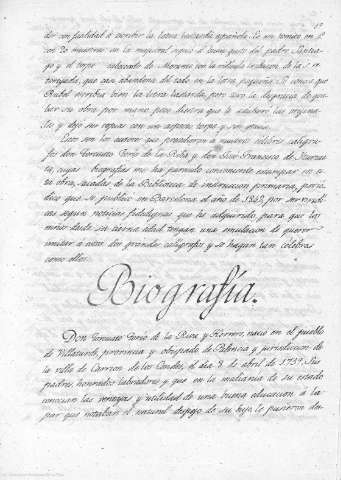 der con facilidad á escribir la letra bastarda española. Es un tomito en 4º
con 20 muestras en la mejor
y el torpe colorido de Moreno con la ridícula inclusion de la
torneada, que casi abandona del todo en la letra pequeña. Se conoce que
Rubel escribia bien la letra bastarda, pero tuvo la desgracia de gra-
bar su obra por mano poco diestra que le adulteró los origina-
les y dejó sus copias con un aspecto torpe y
Estos son los autores que precedieron á nuestros célebres calígra-
fos don Torcuato Torío de la Riva y don José Francisco de Iturzae-
ta, cuyas biografías me ha parecido conveniente estampar en es-
ta obra, sacadas de la Biblioteca de instruccion primaria, perió-
dico que se publicó en Barcelona el año de 1849, por ser verídi-
cas segun noticias fidedignas que he adquirido, para que los
niños desde su tierna edad tengan una emulacion de querer
imitar á estos dos grandes calígrafos y se hagan tan célebres
como ellos.
Biografía.
Don Torcuato Torío de la Riva y Herrero, nació en el pueblo
de Villaturde, provincia y obispado de Palencia y jurisdiccion de
la villa de Carrion de los Condes, el dia 8 de abril de 1759. Sus
padres, honrados labradores y que en la medianía de su estado
conocian las ventajas y utilidad de una buena educacion á la
par que notaban el natural despejo de su hijo le pusieron des-